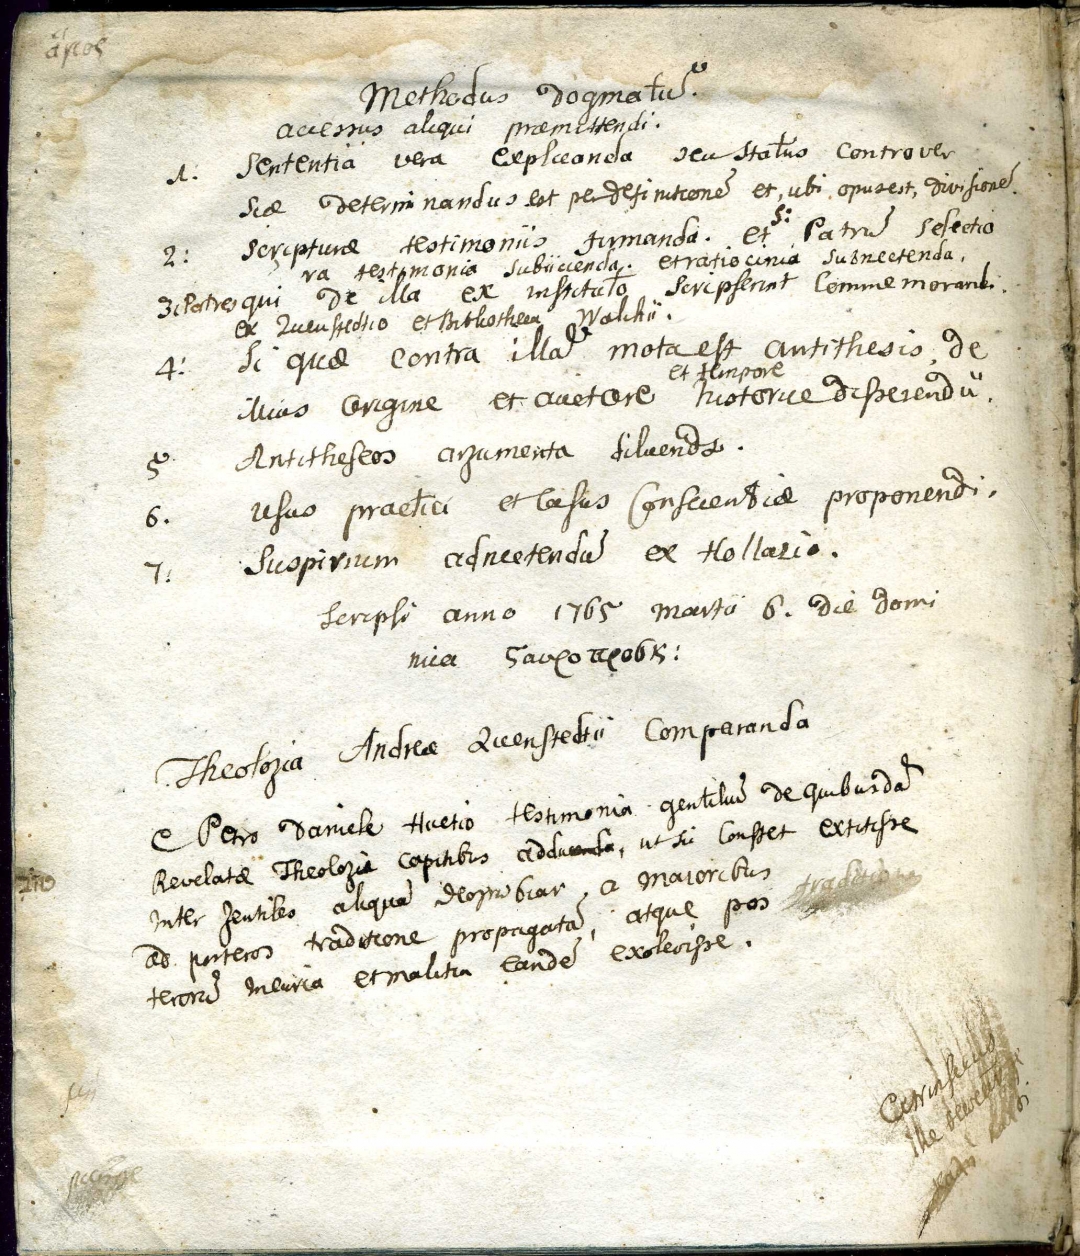 Methodus Dogmatũ.
accessus aliqui præmittendi.
1: Sententia vera explicanda seu Status controver
siæ determinandus est per definitionẽ et, ubi opus est, divisionẽ.
2: Scripturæ testimoniis firmanda. et S: Patrũ selectio
ra testimonia subiicienda. et ratiocinia subnectenda.
3: Patres qui de illa ex instituto scripserint commemorand.
ex Quenstedtio et Bibliotheca Walchii.
4: Si quæ contra illã mota est antithesis, de
et tempore
illius origine et auctore historice disserendũ.
5 Antitheseos argumenta silvenda.
6. Usus practici et Casus Conscientiæ proponendi.
7: Suspirium adnectendũ ex Hollazio.
Scripsi anno 1765 Martii 6. die domi
nica
Theologia Andreæ Quenstedtii comparanda
e Petro Daniele Huetio testimonia gentiliũ de quibusdã
Revelatæ Theologiæ capitibus, ut sic constet extitisse
inter gentiles aliquã a maioribus
ad posteros traditione propagatã, atque pos
terorũ incuria et malitia eandẽ exolevisse.
traditione